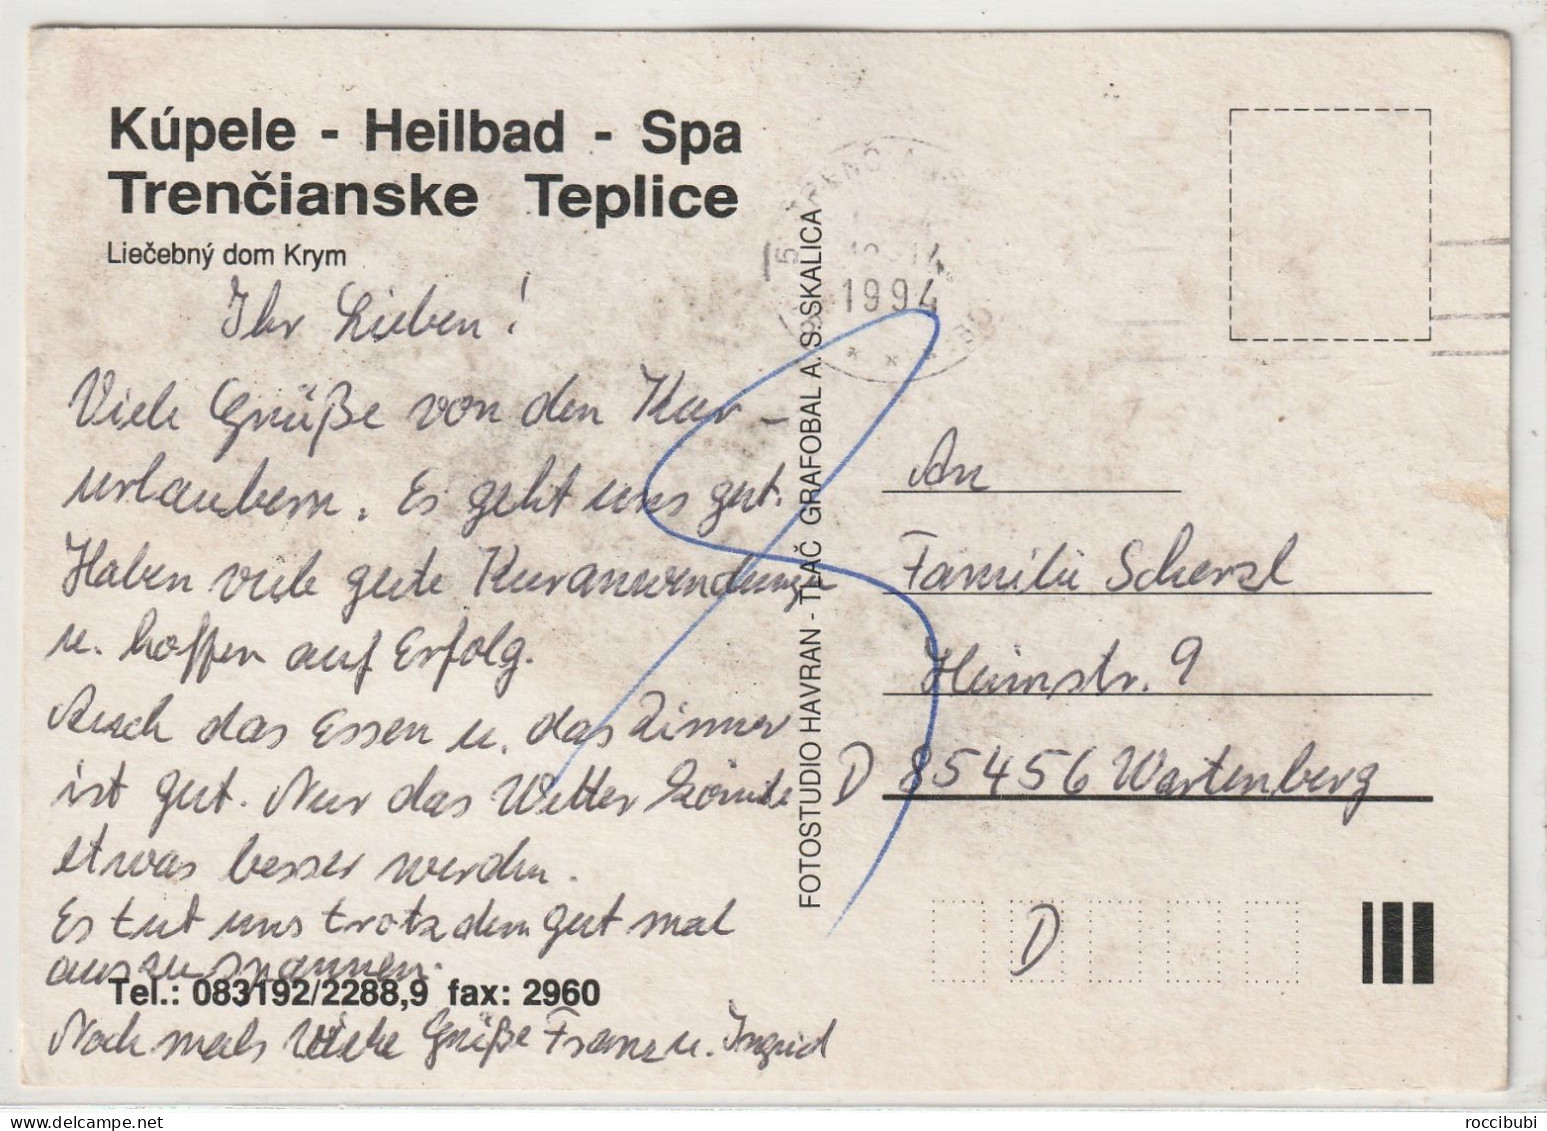 Kúpele - Heilbad - Spa
Trenčianske Teplice
Liečebný dom Krym
Ihr Lieben!
Viele Grüße von den Kur-
urlaubern. Es geht uns gut.
Haben viele gute Kuranwendungen
u. hoffen auf Erfolg.
Auch das Essen u. das Zimmer
ist gut. Nur das Wetter könnte
etwas besser werden.
Es tut uns trotzdem gut mal
auszuspannen.
Tel.: 083192/2288,9 fax: 2960
Nochmals viele Grüße Franz u. Ingrid
FOTOSTUDIO HAVRAN - TLAČ GRAFOBAL A. S. SKALICA
1994
An
Familie Scherzl
Heimstr. 9
D 85456 Wartenberg
D
roccibubi